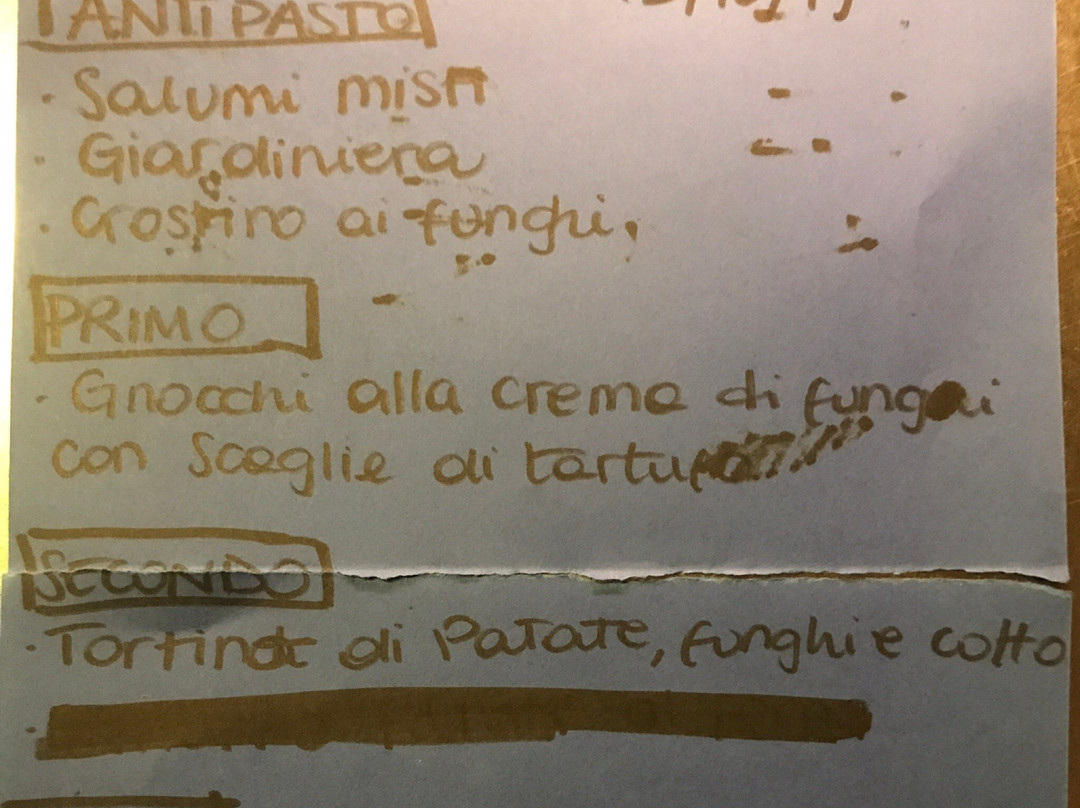 ANTIPASTO
· Salumi misti
· Giardiniera
· Crostino ai funghi.
PRIMO
· Gnocchi alla crema di funghi
con Scaglie di tartufo
SECONDO
· Tortino di Patate, funghi e cotto